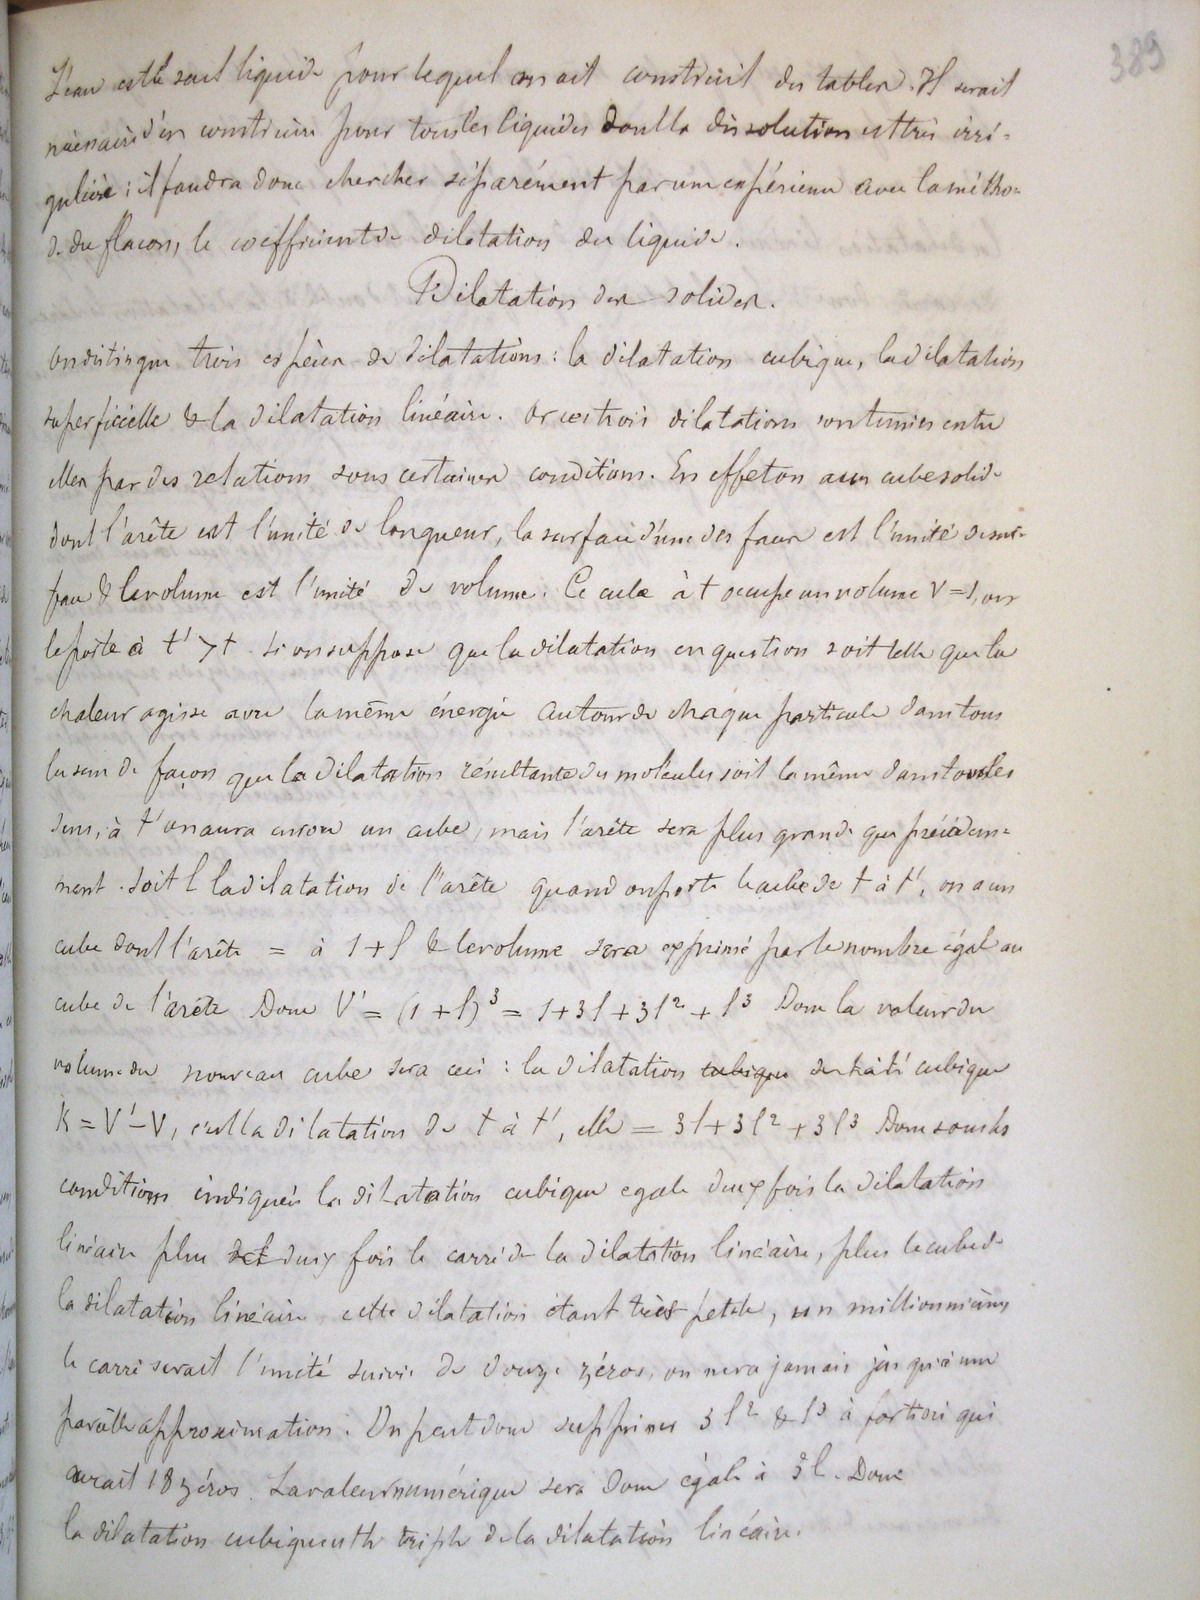 389
L'eau est le seul liquide pour lequel on ait construit des tables. Il serait
nécessaire d'en construire pour tous les liquides dont la dissolution est très irré-
gulière ; il faudra donc chercher séparément par une expérience avec la métho-
de du flacon, le coefficient de dilatation du liquide.
Dilatation des solides.
On distingue trois espèces de dilatations : la dilatation cubique, la dilatation
superficielle & la dilatation linéaire. Or ces trois dilatations sont unies entre
elles par des relations sous certaines conditions. En effet on a un cube solide
dont l'arête est l'unité de longueur, la surface d'une des faces est l'unité de sur-
face & le volume est l'unité de volume. Ce cube à t occupe un volume V = 1, on
le porte à t' > t. Si on suppose que la dilatation en question soit telle que la
chaleur agisse avec la même énergie autour de chaque particule dans tous
les sens de façon que la dilatation résultante des molécules soit la même dans tous les
sens, à t' on aura encore un cube, mais l'arête sera plus grande que précédem-
ment. Soit l la dilatation de l'arête quand on porte le cube de t à t', on a un
cube dont l'arête = à 1 + l & le volume sera exprimé par le nombre égal au
cube de l'arête Donc V' = (1 + l)³ = 1 + 3l + 3l² + l³ Donc la valeur du
volume du nouveau cube sera ceci : la dilatation cubique cubique
K = V' – V, c'est la dilatation de t à t', elle = 3l + 3l² + 3l³ Donc sous les
conditions indiquées la dilatation cubique égale deux fois la dilatation
linéaire plus deux fois le carré de la dilatation linéaire, plus le cube de
la dilatation linéaire cette dilatation étant très petite, un millionnième
le carré serait l'unité suivie de douze zéros, on n'ira jamais jusqu'à une
pareille approximation. On peut donc supprimer 3l² & l³ à fortiori qui
aurait 18 zéros. La valeur numérique sera donc égale à 3l. Donc
la dilatation cubique est le triple de la dilatation linéaire.